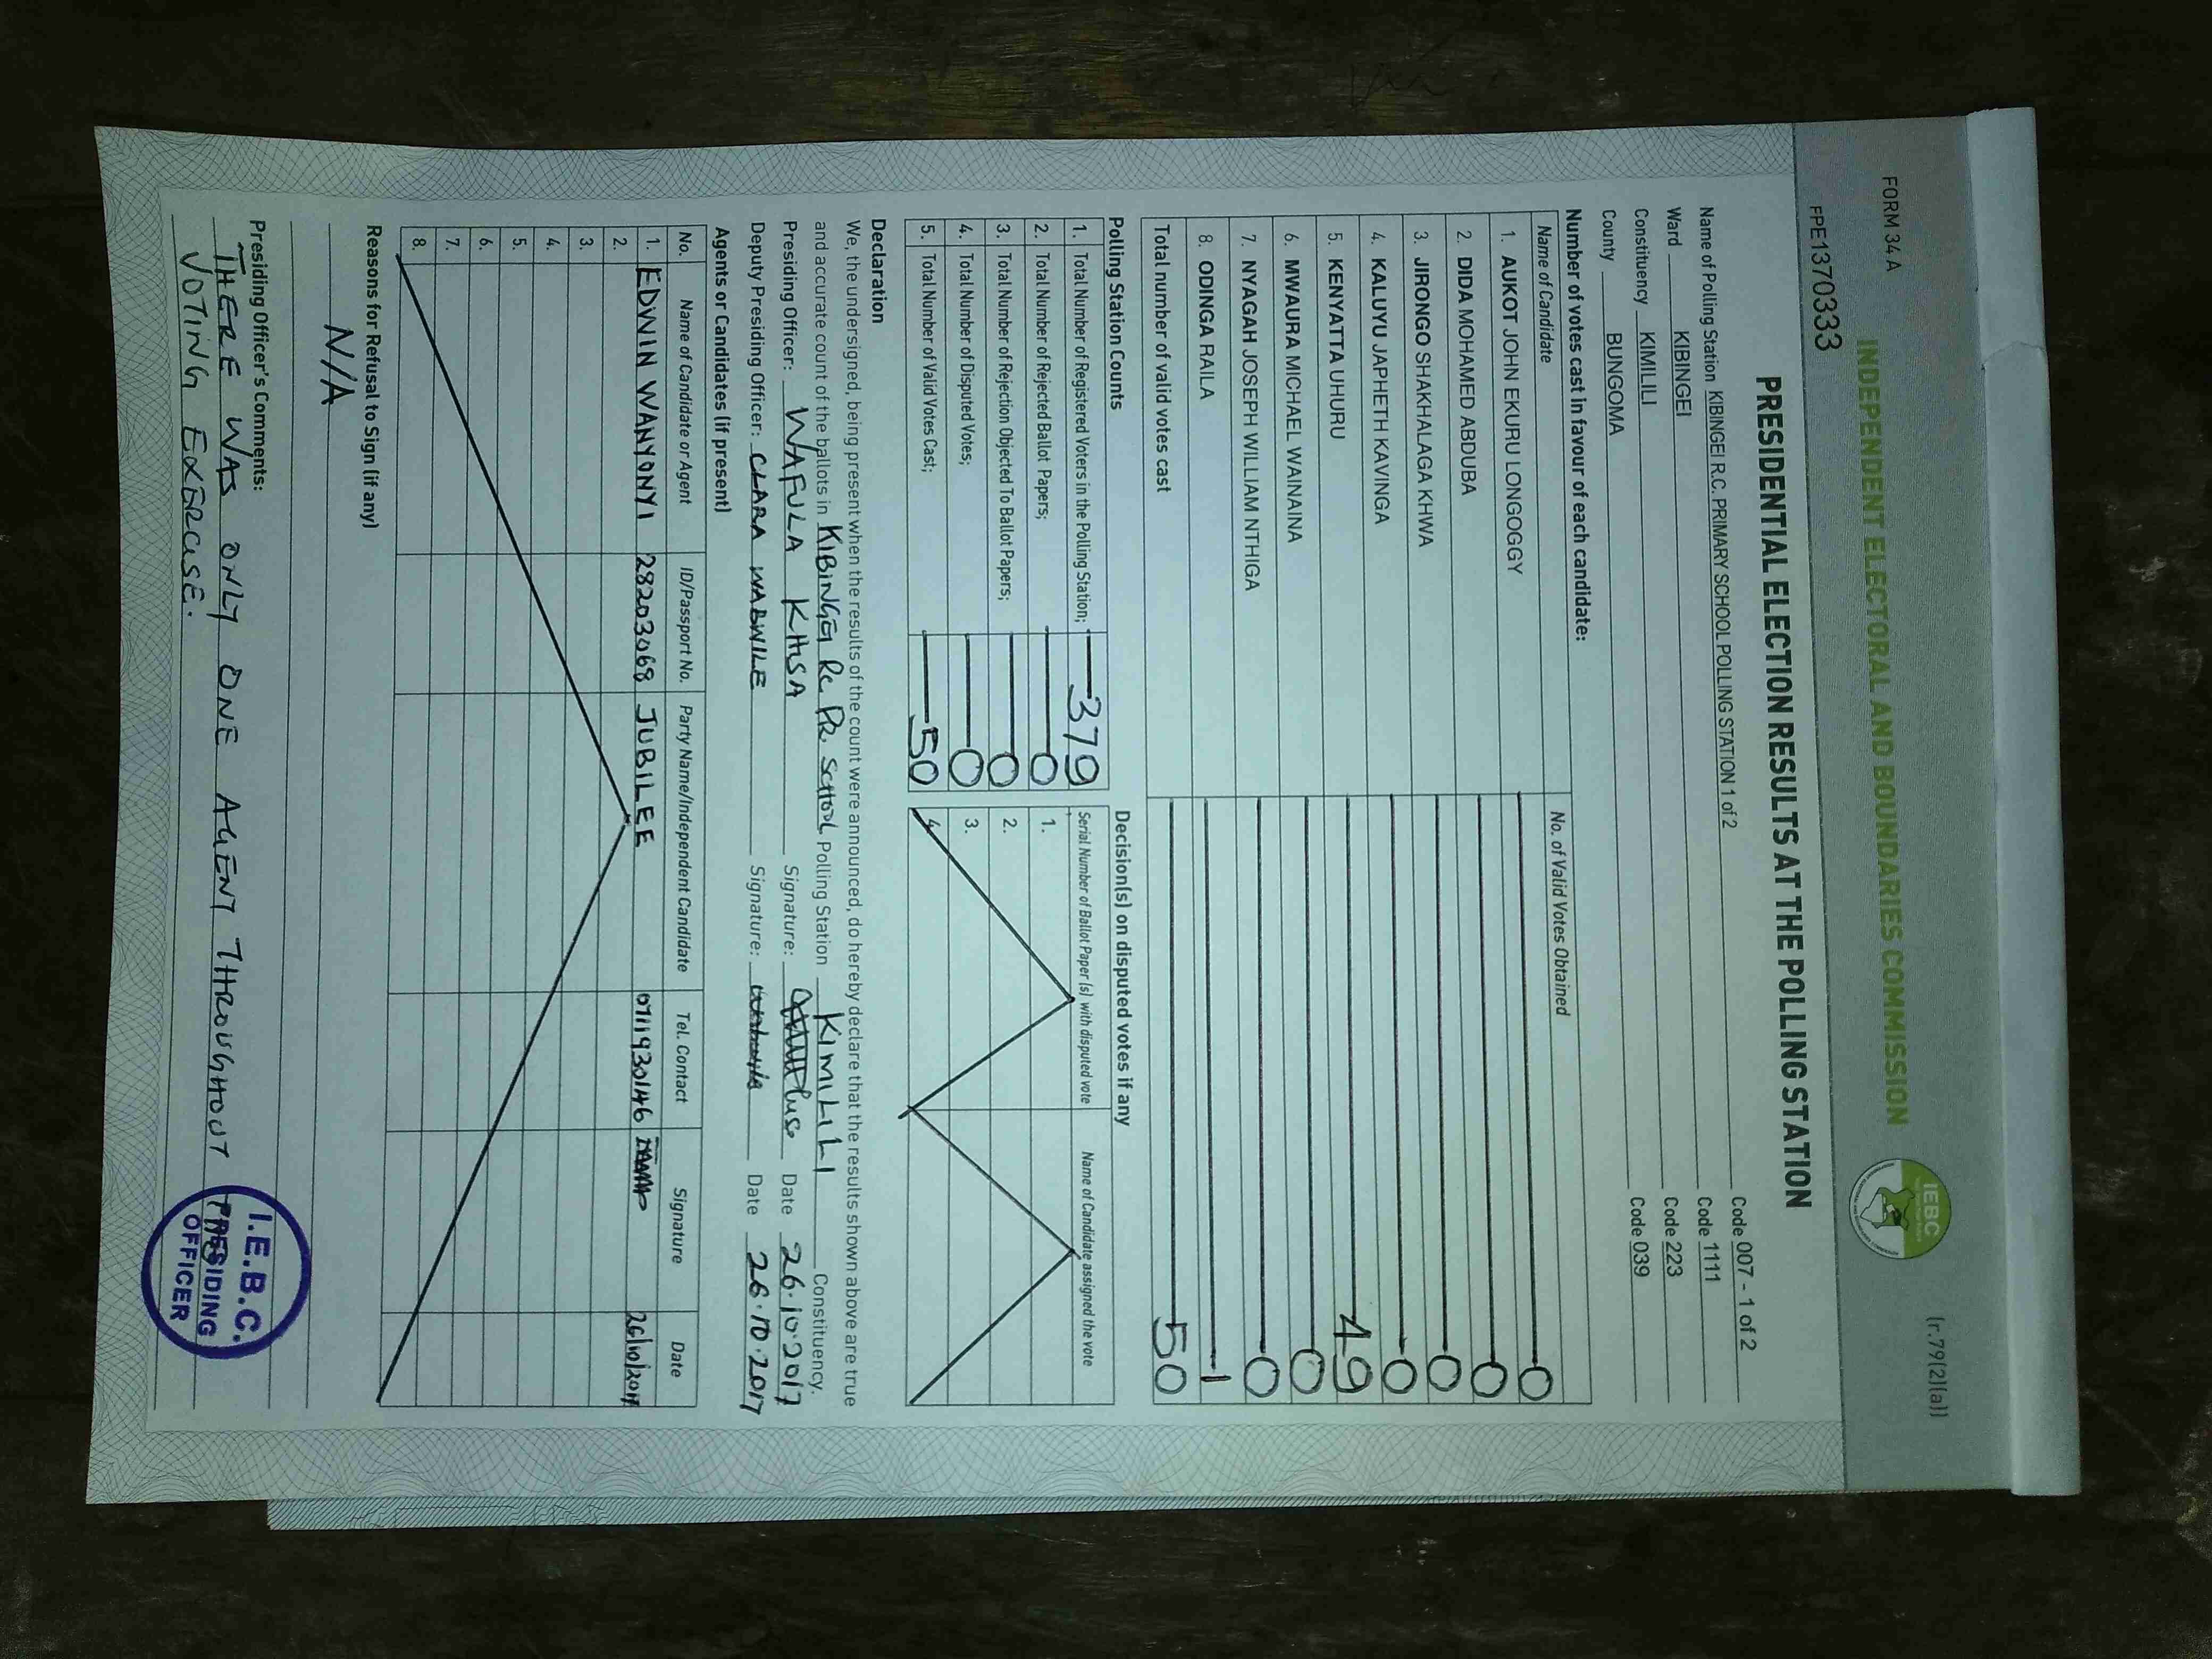 FORM 34A
(r.79(2)(a))
INDEPENDENT ELECTORAL AND BOUNDARIES COMMISSION
IEBC
FPE1370333
PRESIDENTIAL ELECTION RESULTS AT THE POLLING STATION
Name of Polling Station KIBINGEI R.C. PRIMARY SCHOOL POLLING STATION 1 of 2 Code 007 - 1 of 2
Ward KIBINGEI Code 1111
Constituency KIMILILI Code 223
County BUNGOMA Code 039
Number of votes cast in favour of each candidate:
Name of Candidate No. of Valid Votes Obtained
1. AUKOT JOHN EKURU LONGOGGY 0
2. DIDA MOHAMED ABDUBA 0
3. JIRONGO SHAKHALAGA KHWA 0
4. KALUYU JAPHETH KAVINGA 0
5. KENYATTA UHURU 49
6. MWAURA MICHAEL WAINAINA 0
7. NYAGAH JOSEPH WILLIAM NTHIGA 0
8. ODINGA RAILA 1
Total number of valid votes cast 50
Polling Station Counts
1. Total Number of Registered Voters in the Polling Station; 379
2. Total Number of Rejected Ballot Papers; 0
3. Total Number of Rejection Objected To Ballot Papers; 0
4. Total Number of Disputed Votes; 0
5. Total Number of Valid Votes Cast; 50
Decision(s) on disputed votes if any
Serial Number of Ballot Paper (s) with disputed vote Name of Candidate assigned the vote
1.
2.
3.
4.
Declaration
We, the undersigned, being present when the results of the count were announced, do hereby declare that the results shown above are true
and accurate count of the ballots in KIBINGEI RC PR. SCHOOL Polling Station KIMILILI Constituency.
Presiding Officer: WAFULA KHISA Signature: Date 26.10.2017
Deputy Presiding Officer: CLARA WABWILE Signature: Date 26.10.2017
Agents or Candidates (if present)
No. Name of Candidate or Agent ID/Passport No. Party Name/Independent Candidate Tel. Contact Signature Date
1. EDWIN WANYONYI 28203068 JUBILEE 0711930146 26/10/2017
2.
3.
4.
5.
6.
7.
8.
Reasons for Refusal to Sign (if any)
N/A
Presiding Officer's Comments:
THERE WAS ONLY ONE AGENT THROUGHOUT THE
VOTING EXERCISE.
I.E.B.C.
PRESIDING
OFFICER